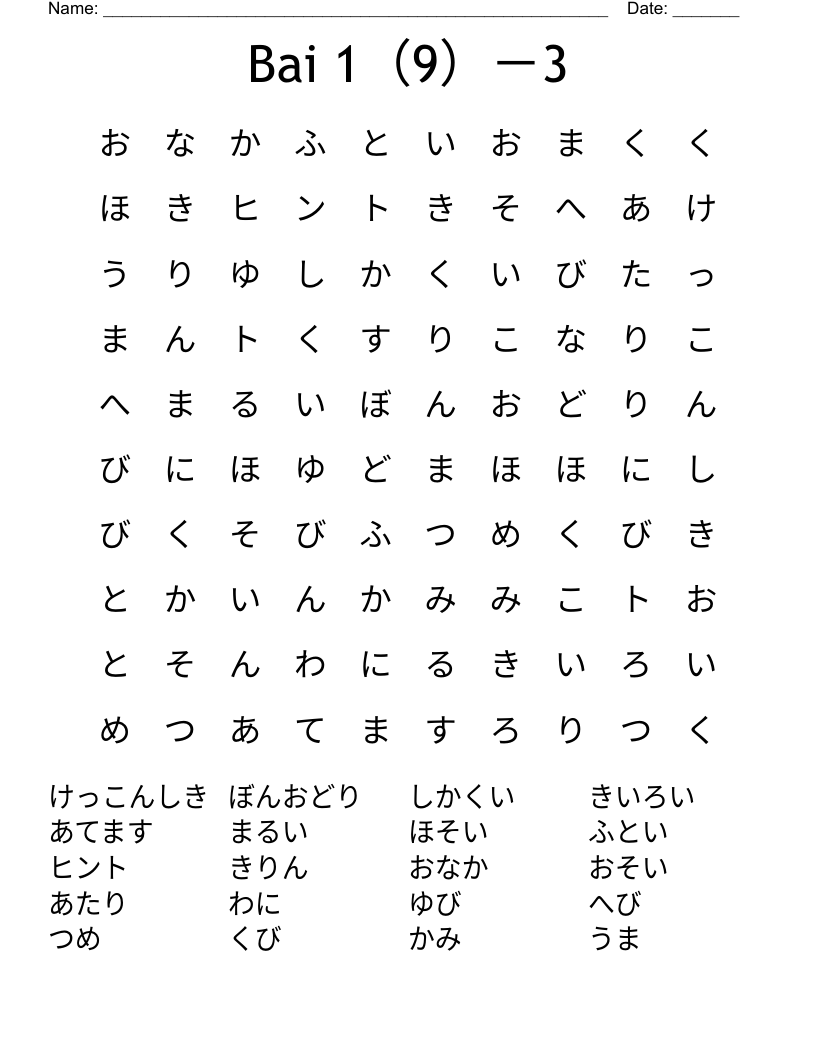 Name: ____________________________________________________ Date: _______
Bai 1（9）－3
お な か ふ と い お ま く く
ほ き ヒ ン ト き そ へ あ け
う り ゆ し か く い び た っ
ま ん ト く す り こ な り こ
へ ま る い ぼ ん お ど り ん
び に ほ ゆ ど ま ほ ほ に し
び く そ び ふ つ め く び き
と か い ん か み み こ ト お
と そ ん わ に る き い ろ い
め つ あ て ま す ろ り つ く
けっこんしき ぼんおどり しかくい きいろい
あてます まるい ほそい ふとい
ヒント きりん おなか おそい
あたり わに ゆび へび
つめ くび かみ うま